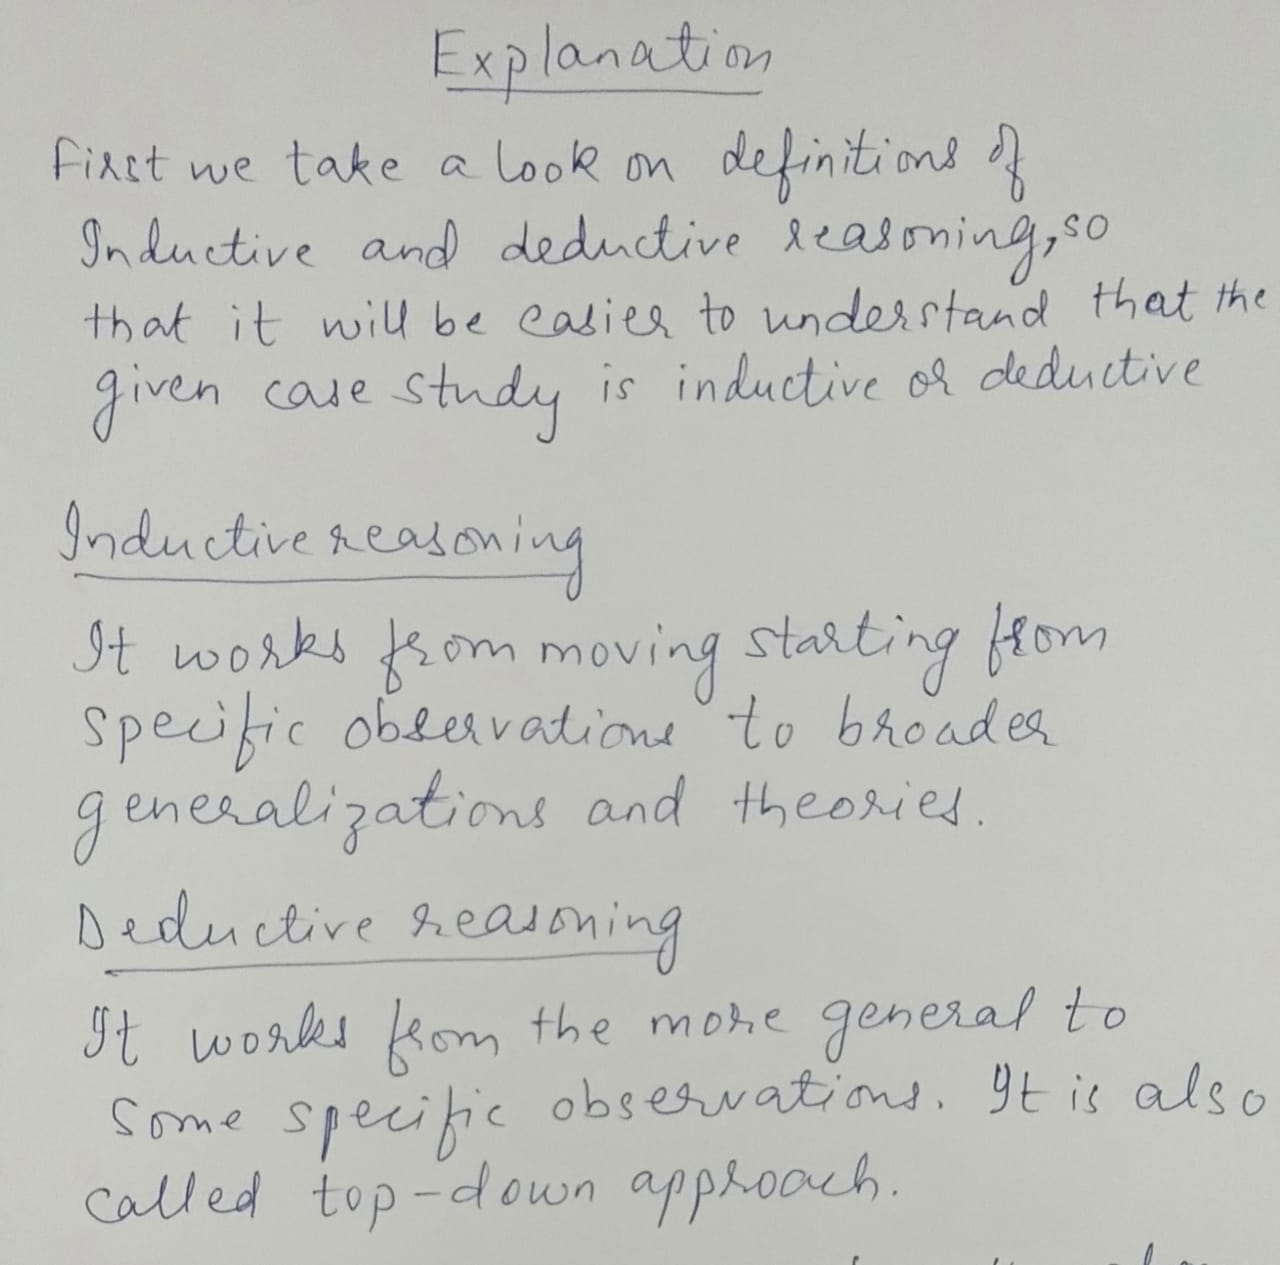 Explanation
First we take a look on definitions of
Inductive and deductive reasoning, so
that it will be easier to understand that the
given case study is inductive or deductive
Inductive reasoning
It works from moving starting from
specific observations to broader
generalizations and theories.
Deductive reasoning
It works from the more general to
some specific observations. It is also
called top-down approach.